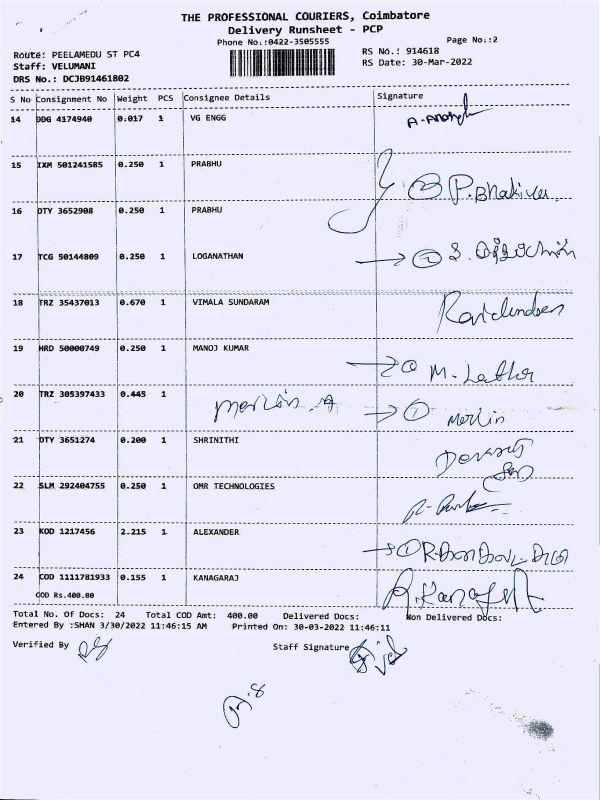 THE PROFESSIONAL COURIERS, Coimbatore
Delivery Runsheet - PCP
Phone No.:0422-3505555
Page No.:2
Route: PEELAMEDU ST PC4
RS No.: 914618
Staff: VELUMANI
RS Date: 30-Mar-2022
DRS No.: DCJB91461802
S No Consignment No Weight PCS Consignee Details Signature
14 DDG 4174940 0.017 1 VG ENGG
15 IXM 501241585 0.250 1 PRABHU
16 DTY 3652908 0.250 1 PRABHU
17 TCG 50144809 0.250 1 LOGANATHAN
18 TRZ 35437013 0.670 1 VIMALA SUNDARAM
19 HRD 50000749 0.250 1 MANOJ KUMAR
20 TRZ 305397433 0.445 1 Merlin. A → ① Merlin
21 DTY 3651274 0.200 1 SHRINITHI
22 SLM 292404755 0.250 1 OMR TECHNOLOGIES
23 KOD 1217456 2.215 1 ALEXANDER
24 COD 1111781933 0.155 1 KANAGARAJ
COD Rs.400.00
Total No. Of Docs: 24 Total COD Amt: 400.00 Delivered Docs: Non Delivered Docs:
Entered By :SHAN 3/30/2022 11:46:15 AM Printed On: 30-03-2022 11:46:11
Verified By
Staff Signature